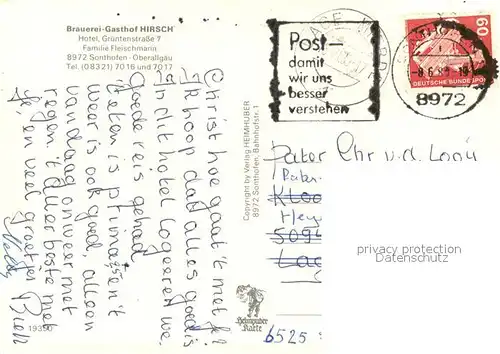 Brauerei-Gasthof HIRSCH
Hotel, Grüntenstraße 7
Familie Fleischmann
8972 Sonthofen-Oberallgäu
Tel. (08321) 7016 und 7017
Christ hoe gaat 't met je
Ik hoop dat alles goed is
In dit hotel logeeren we.
Goede reis gehad
Eten is prima, zo'n
weer is ook goed, alleen
vandaag onweer met
regen. 't Aller beste met
je, en veel groetjes
Nelly Bieh
19390
Copyright by Verlag HEIMHUBER
8972 Sonthofen, Bahnhofstr. 1
Heimhuber
Karte
Post—
damit
wir uns
besser
verstehen
60
DEUTSCHE BUNDESPOST
8972
Pater Chr v.d. Looij
Pater
Kloo
Hey
509
Laa
6525
privacy protection
Datenschutz